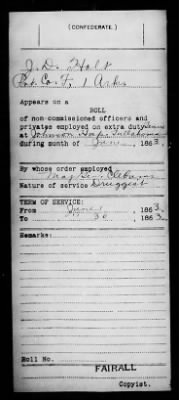 (CONFEDERATE.)
J. D. Holt
Pvt. Co. F, 1 Ark.
Appears on a
ROLL
of non-commissioned officers and
privates employed on extra duty
at Johnson Hosp. Tullahoma
during month of June, 1863.
By whose order employed
Maj. Gen. Cleburne
Nature of service Druggist
TERM OF SERVICE:
From June 1, 1863.
To " 30, 1863
Remarks:
Roll No.
FAIRALL
Copyist.